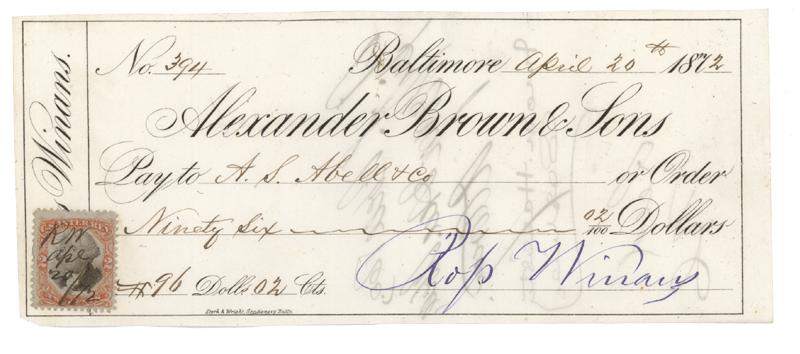 Winans.
No. 394 Baltimore April 20th 1872
Alexander Brown & Sons
Pay to A. S. Abell & Co or Order
Ninety Six 02/100 Dollars
$96 Dolls 02 Cts.
Ross Winans
RW
Apl
20
/72
Stork & Wright, Stationers, Balto.